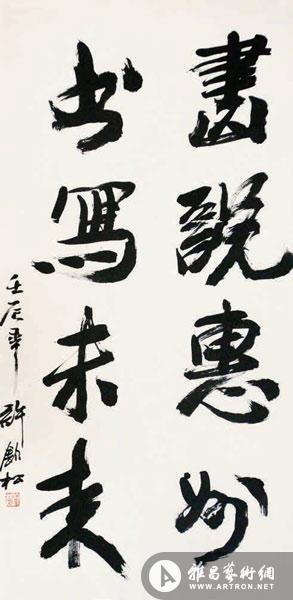 畫説惠州
书寫未来
壬辰年 許欽松
雅昌藝術網
WWW.ARTRON.NET